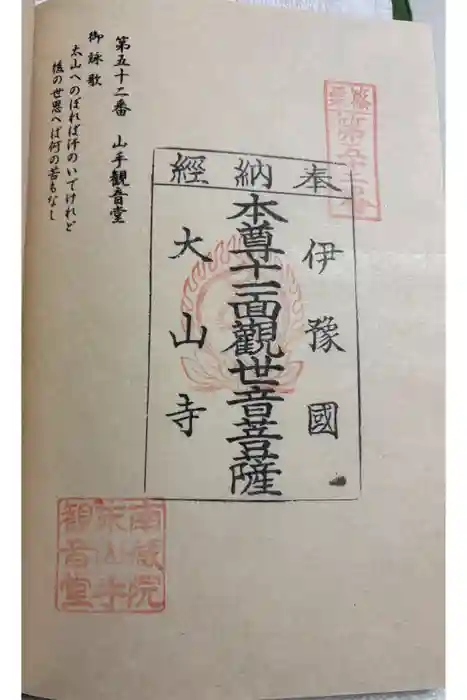 第五十二番
奉納經
伊豫國
本尊十一面觀世音菩薩
大山寺
第五十二番 山手觀音堂
御詠歌
太山へのぼれば汗のいでけれど
後の世思へば何の苦もなし
南蔵院
山手
観音堂